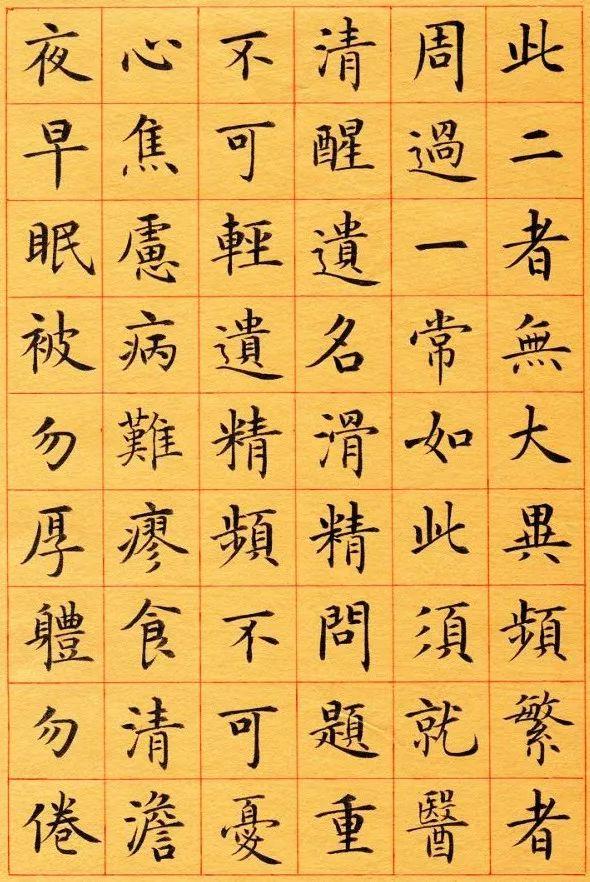 此二者無大異頻繁者
周過一常如此須就醫
清醒遺名滑精問題重
不可輕遺精頻不可憂
心焦慮病難瘳食清澹
夜早眠被勿厚體勿倦